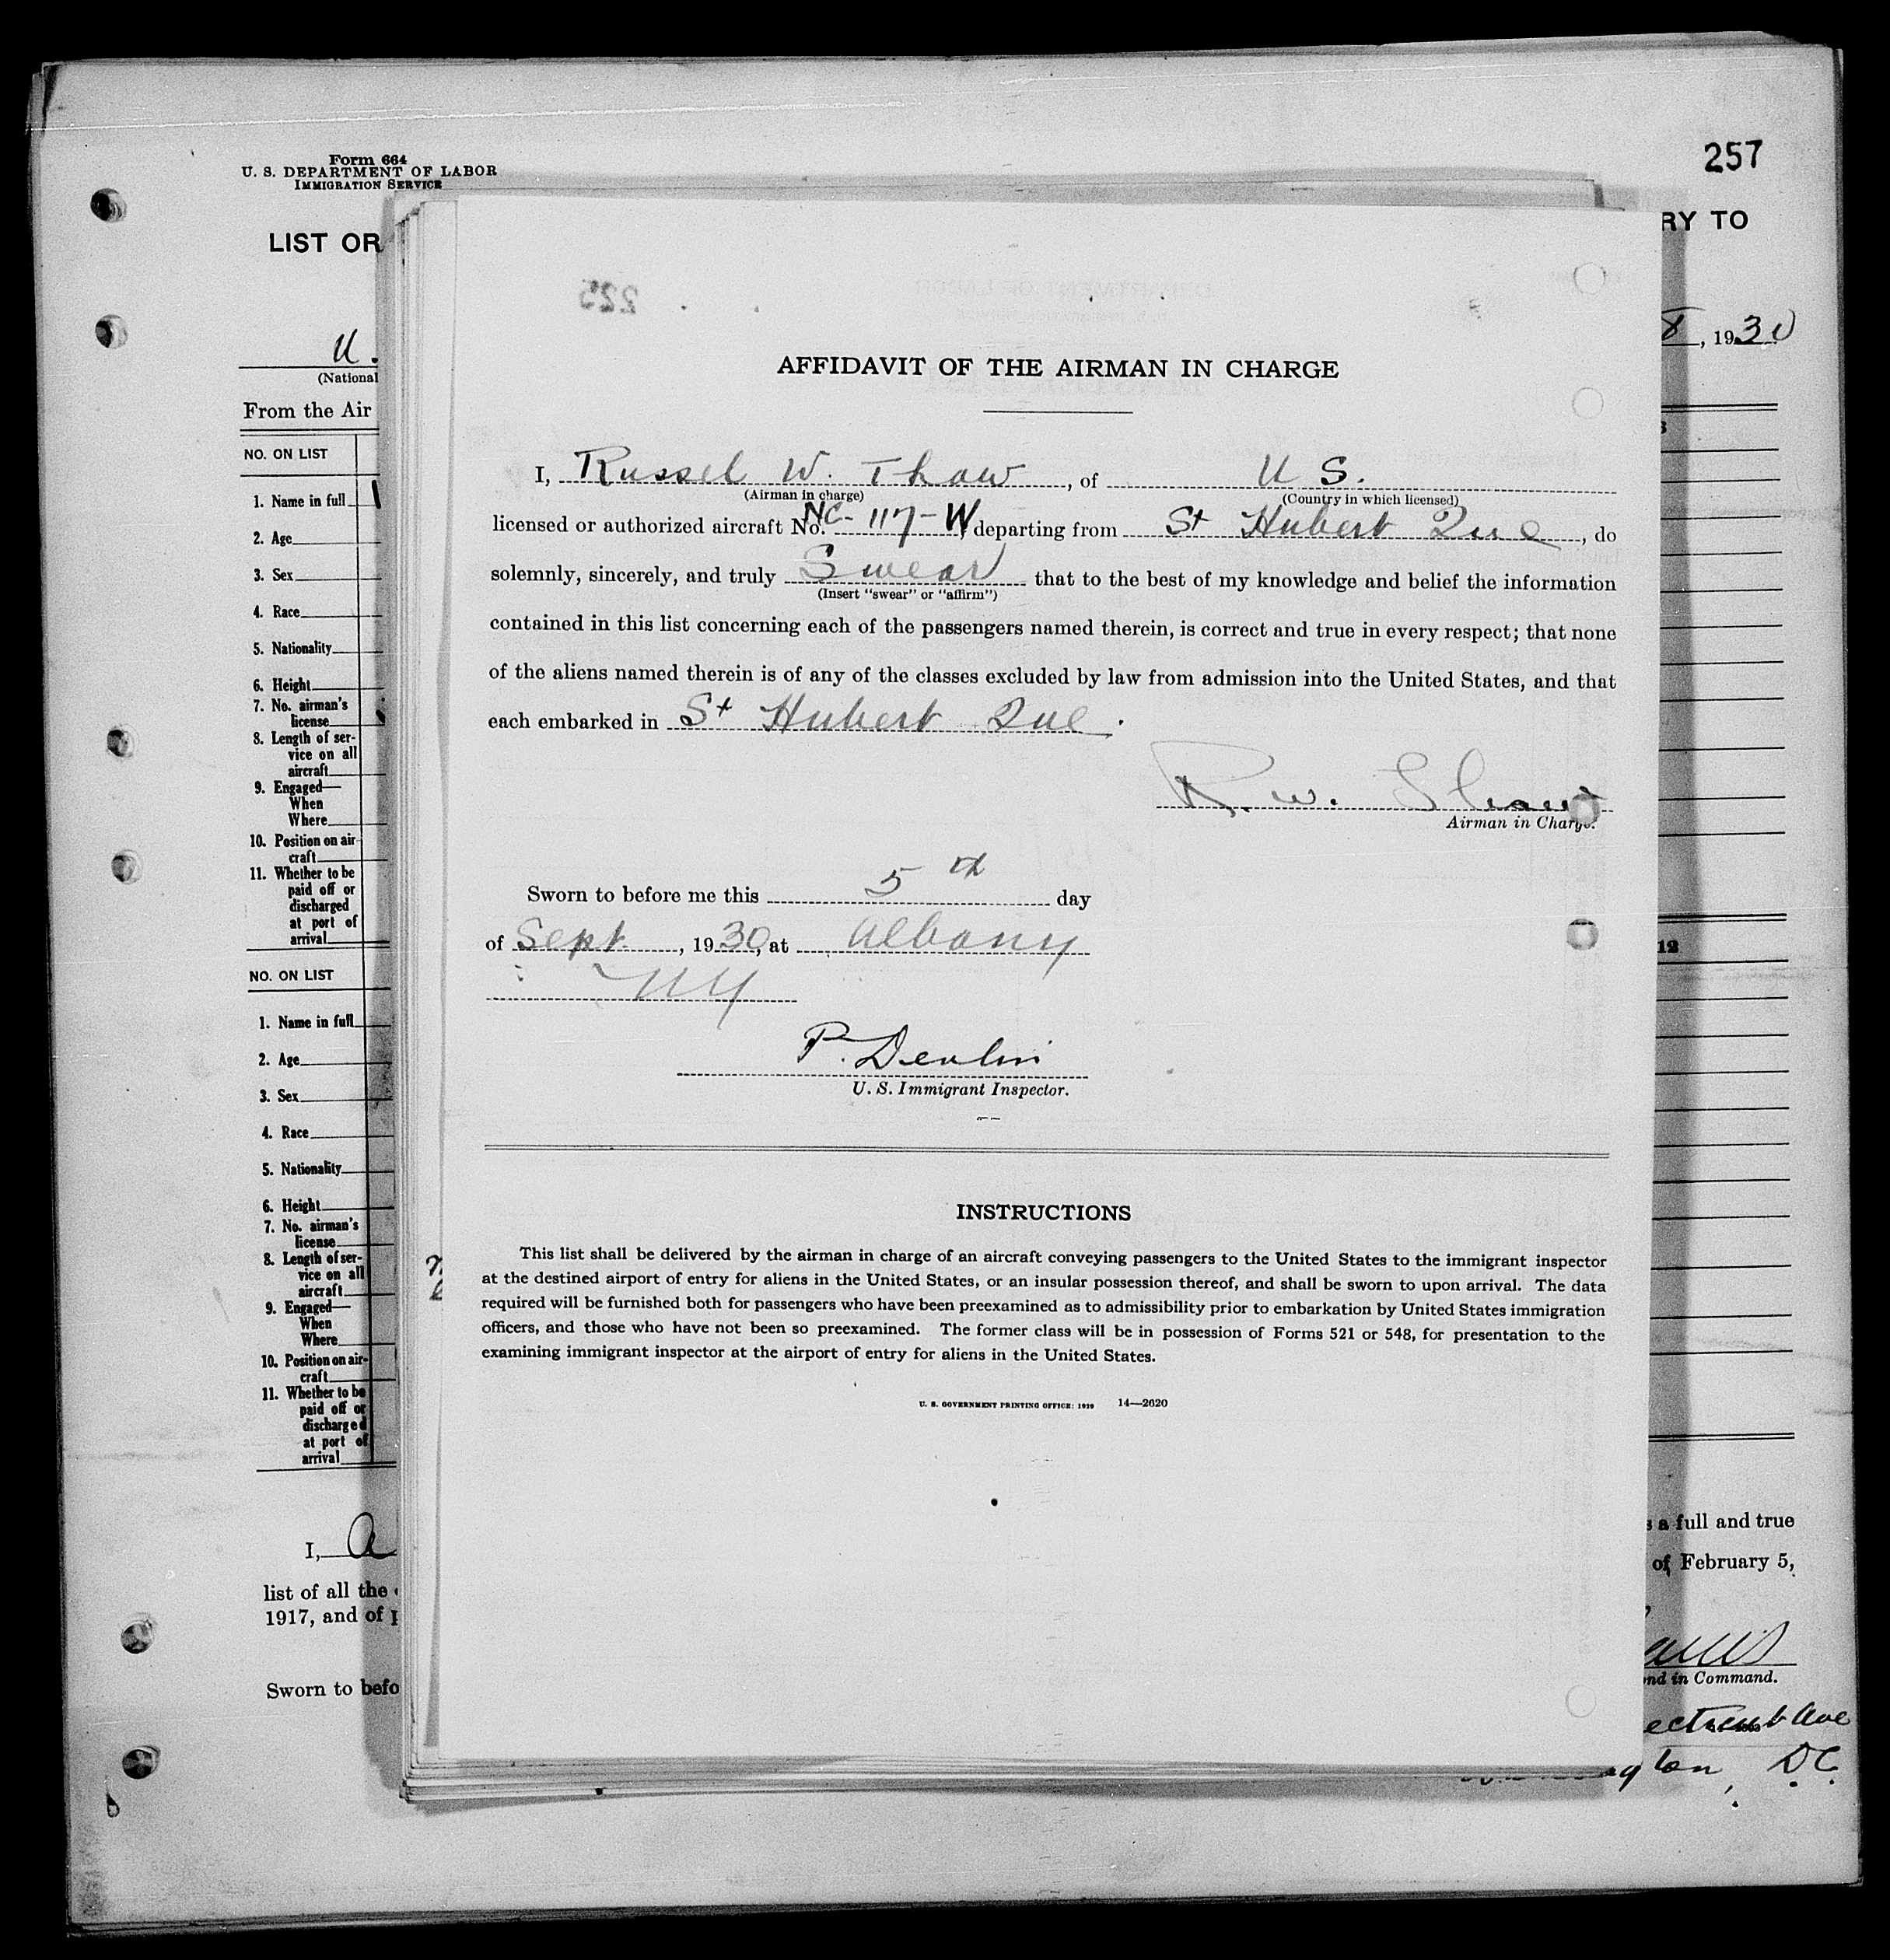 Form 664
U. S. DEPARTMENT OF LABOR
IMMIGRATION SERVICE
257
LIST OR
RY TO
U.
(National
, 1930
From the Air
NO. ON LIST
1. Name in full
2. Age
3. Sex
4. Race
5. Nationality
6. Height
7. No. airman's
license
8. Length of ser-
vice on all
aircraft
9. Engaged—
When
Where
10. Position on air-
craft
11. Whether to be
paid off or
discharged
at port of
arrival
NO. ON LIST
12
1. Name in full
2. Age
3. Sex
4. Race
5. Nationality
6. Height
7. No. airman's
license
8. Length of ser-
vice on all
aircraft
9. Engaged—
When
Where
10. Position on air-
craft
11. Whether to be
paid off or
discharged
at port of
arrival
I, A
s a full and true
list of all the
of February 5,
1917, and of
Sworn to befo
nd in Command.
ectricut Ave
gton, D.C.
225
AFFIDAVIT OF THE AIRMAN IN CHARGE
I, Russel W. Thaw, of U S.
(Airman in charge) (Country in which licensed)
licensed or authorized aircraft No. NC-117-W, departing from St Hubert Que, do
solemnly, sincerely, and truly Swear that to the best of my knowledge and belief the information
(Insert "swear" or "affirm")
contained in this list concerning each of the passengers named therein, is correct and true in every respect; that none
of the aliens named therein is of any of the classes excluded by law from admission into the United States, and that
each embarked in St Hubert Que.
R. W. Thaw
Airman in Charge.
Sworn to before me this 5th day
of Sept, 1930, at Albany
NY
P. Devlin
U. S. Immigrant Inspector.
INSTRUCTIONS
This list shall be delivered by the airman in charge of an aircraft conveying passengers to the United States to the immigrant inspector
at the destined airport of entry for aliens in the United States, or an insular possession thereof, and shall be sworn to upon arrival. The data
required will be furnished both for passengers who have been preexamined as to admissibility prior to embarkation by United States immigration
officers, and those who have not been so preexamined. The former class will be in possession of Forms 521 or 548, for presentation to the
examining immigrant inspector at the airport of entry for aliens in the United States.
U. S. GOVERNMENT PRINTING OFFICE: 1929 14—2620